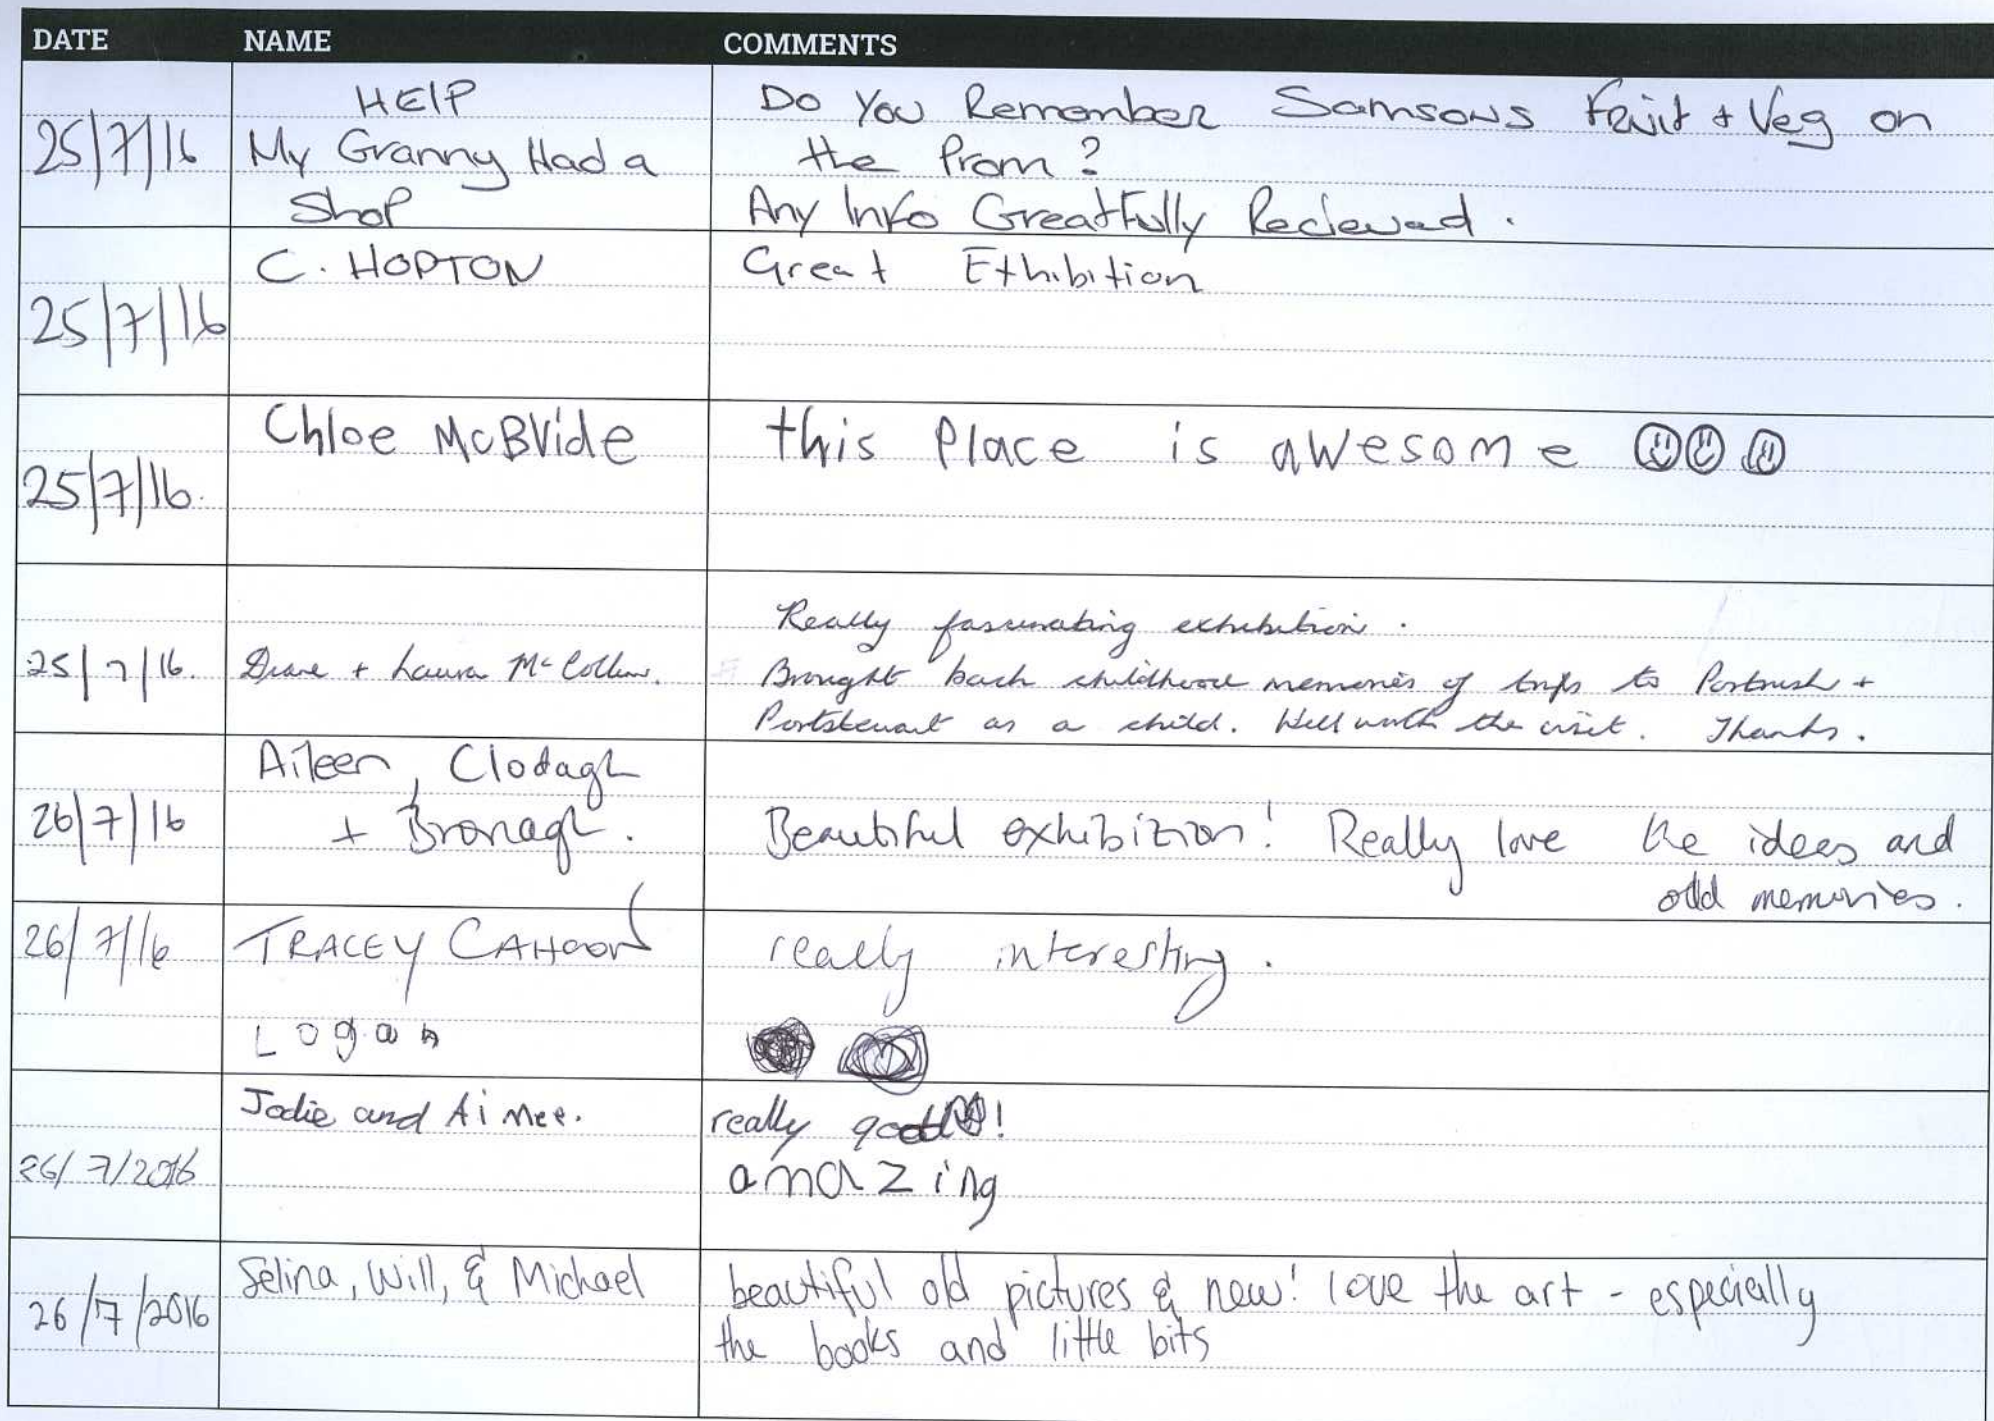 DATE NAME COMMENTS
HELP
My Granny Had a
Shop
25/7/16
Do You Remember Samsons Fruit + Veg on
the Prom?
Any Info Greatfully Recieved.
25/7/16
C. HOPTON
Great Exhibition
25/7/16.
Chloe McBride
this Place is awesome
25/7/16.
Diane + Laura McCollum.
Really fascinating exhibition.
Brought back childhood memories of trips to Portrush +
Portstewart as a child. Well worth the visit. Thanks.
26/7/16
Aileen, Clodagh
+ Bronagh.
Beautiful exhibition! Really love the idees and
odd memories.
26/7/16
TRACEY CAHOON
really interesting.
Logan
26/7/2016
Jodie and Aimee.
really good!
amazing
26/7/2016
Selina, Will, & Michael
beautiful old pictures & new! love the art - especially
the books and little bits